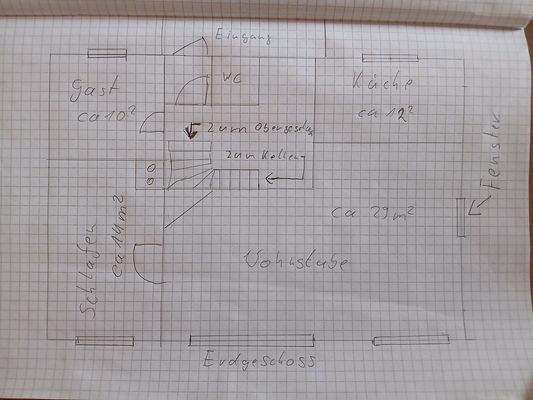 Eingang
Gast
ca 10²
WC
Küche
ca 12²
Zum Obergeschoß
Zum Keller
Fenster
Schlafen
ca 14m²
ca 29m²
Wohnstube
Erdgeschoss